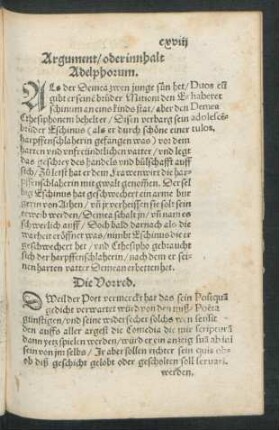 cxviij
Argument / oder innhalt
Adelphorum.
ALs der Demea zwen junge sün het / Duos cū
gibt er seinē brůder Mitioni den E- haberet
schinum an eins kinds stat / aber den Demea
Cthesiphonem behelter / Disen verbarg sein adolescē-
brůder Eschinus (als er durch schöne einer tulos.
harpffenschlaherin gefangen was) vor dem
harten und unfreündtlichen vatter / und legt
das geschrey des handels und bůlschafft auff
sich / Zůlerst hat er dem Frawenwirt die harpf-
fenschlaherin mit gwalt genommen. Der sel-
big Eschinus hat geschwechet ein arme burge-
rin võ Athenis / uñ jr verheissen sie solt sein
eeweib werden / Demea schalt jn / uñ nam es
schwerlich auff / Doch bald darnach als die
warheit eröffnet was / nimbt Eschinus die er
geschwechert het / und Cthesipho gebraucht
sich der harpffenschlaherin / nach dem er sei-
nen harten vatter Demean erbetten het.
Die Vorred.
DWeil der Poet vermerckt hat das sein Postquā
gedicht verwartet würd von den miß- Poëta
günstigen / und seine widersecher solchs wen sensit
den auffs aller argest die Comedia die wir scripturā
dann yetz spielen werden / würd er ein anzeig suā ab ini
sein von jm selbs / Ir aber sollen richter sein quis ob-
ob diß geschicht gelobt oder gescholten soll servari.
werden.